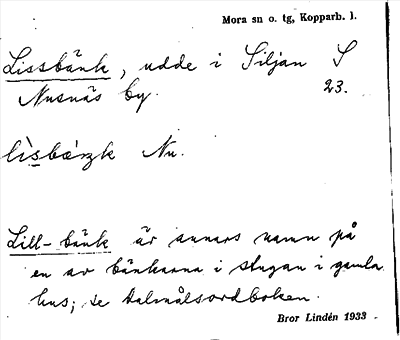 Mora sn o. tg, Kopparb. l.
Lissbänk, udde i Siljan S
Nusnäs by. 23.
Nu.
Lill-bänk är annars namn på
en av bänkarna i stugan i gamla
hus; se Dalmålsordboken.
Bror Lindén 1933